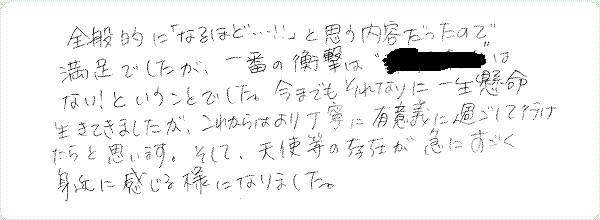 全般的に「なるほど…!!」と思う内容だったので
満足でしたが、一番の衝撃は“ ”は
ない!ということでした。今までもそれなりに一生懸命
生きてきましたが、これからはより丁寧に有意義に過ごして行け
たらと思います。そして、天使等の存在が急にすごく
身近に感じる様になりました。